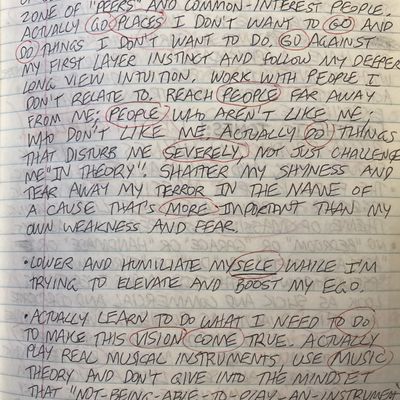 ZONE OF "PEERS" AND COMMON-INTEREST PEOPLE.
ACTUALLY GO PLACES I DON'T WANT TO GO AND
DO THINGS I DON'T WANT TO DO, GO AGAINST
MY FIRST LAYER INSTINCT AND FOLLOW MY DEEPER
LONG VIEW INTUITION. WORK WITH PEOPLE I
DON'T RELATE TO. REACH PEOPLE FAR AWAY
FROM ME; PEOPLE WHO AREN'T LIKE ME;
WHO DON'T LIKE ME. ACTUALLY DO THINGS
THAT DISTURB ME SEVERELY, NOT JUST CHALLENGE
ME "IN THEORY". SHATTER MY SHYNESS AND
TEAR AWAY MY TERROR IN THE NAME OF
A CAUSE THAT'S MORE IMPORTANT THAN MY
OWN WEAKNESS AND FEAR.
• LOWER AND HUMILIATE MYSELF WHILE I'M
TRYING TO ELEVATE AND BOOST MY EGO.
• ACTUALLY LEARN TO DO WHAT I NEED TO DO
TO MAKE THIS VISION COME TRUE. ACTUALLY
PLAY REAL MUSICAL INSTRUMENTS, USE MUSIC
THEORY AND DON'T GIVE INTO THE MINDSET
THAT "NOT-BEING-ABLE-TO-PLAY-AN-INSTRUMENT"